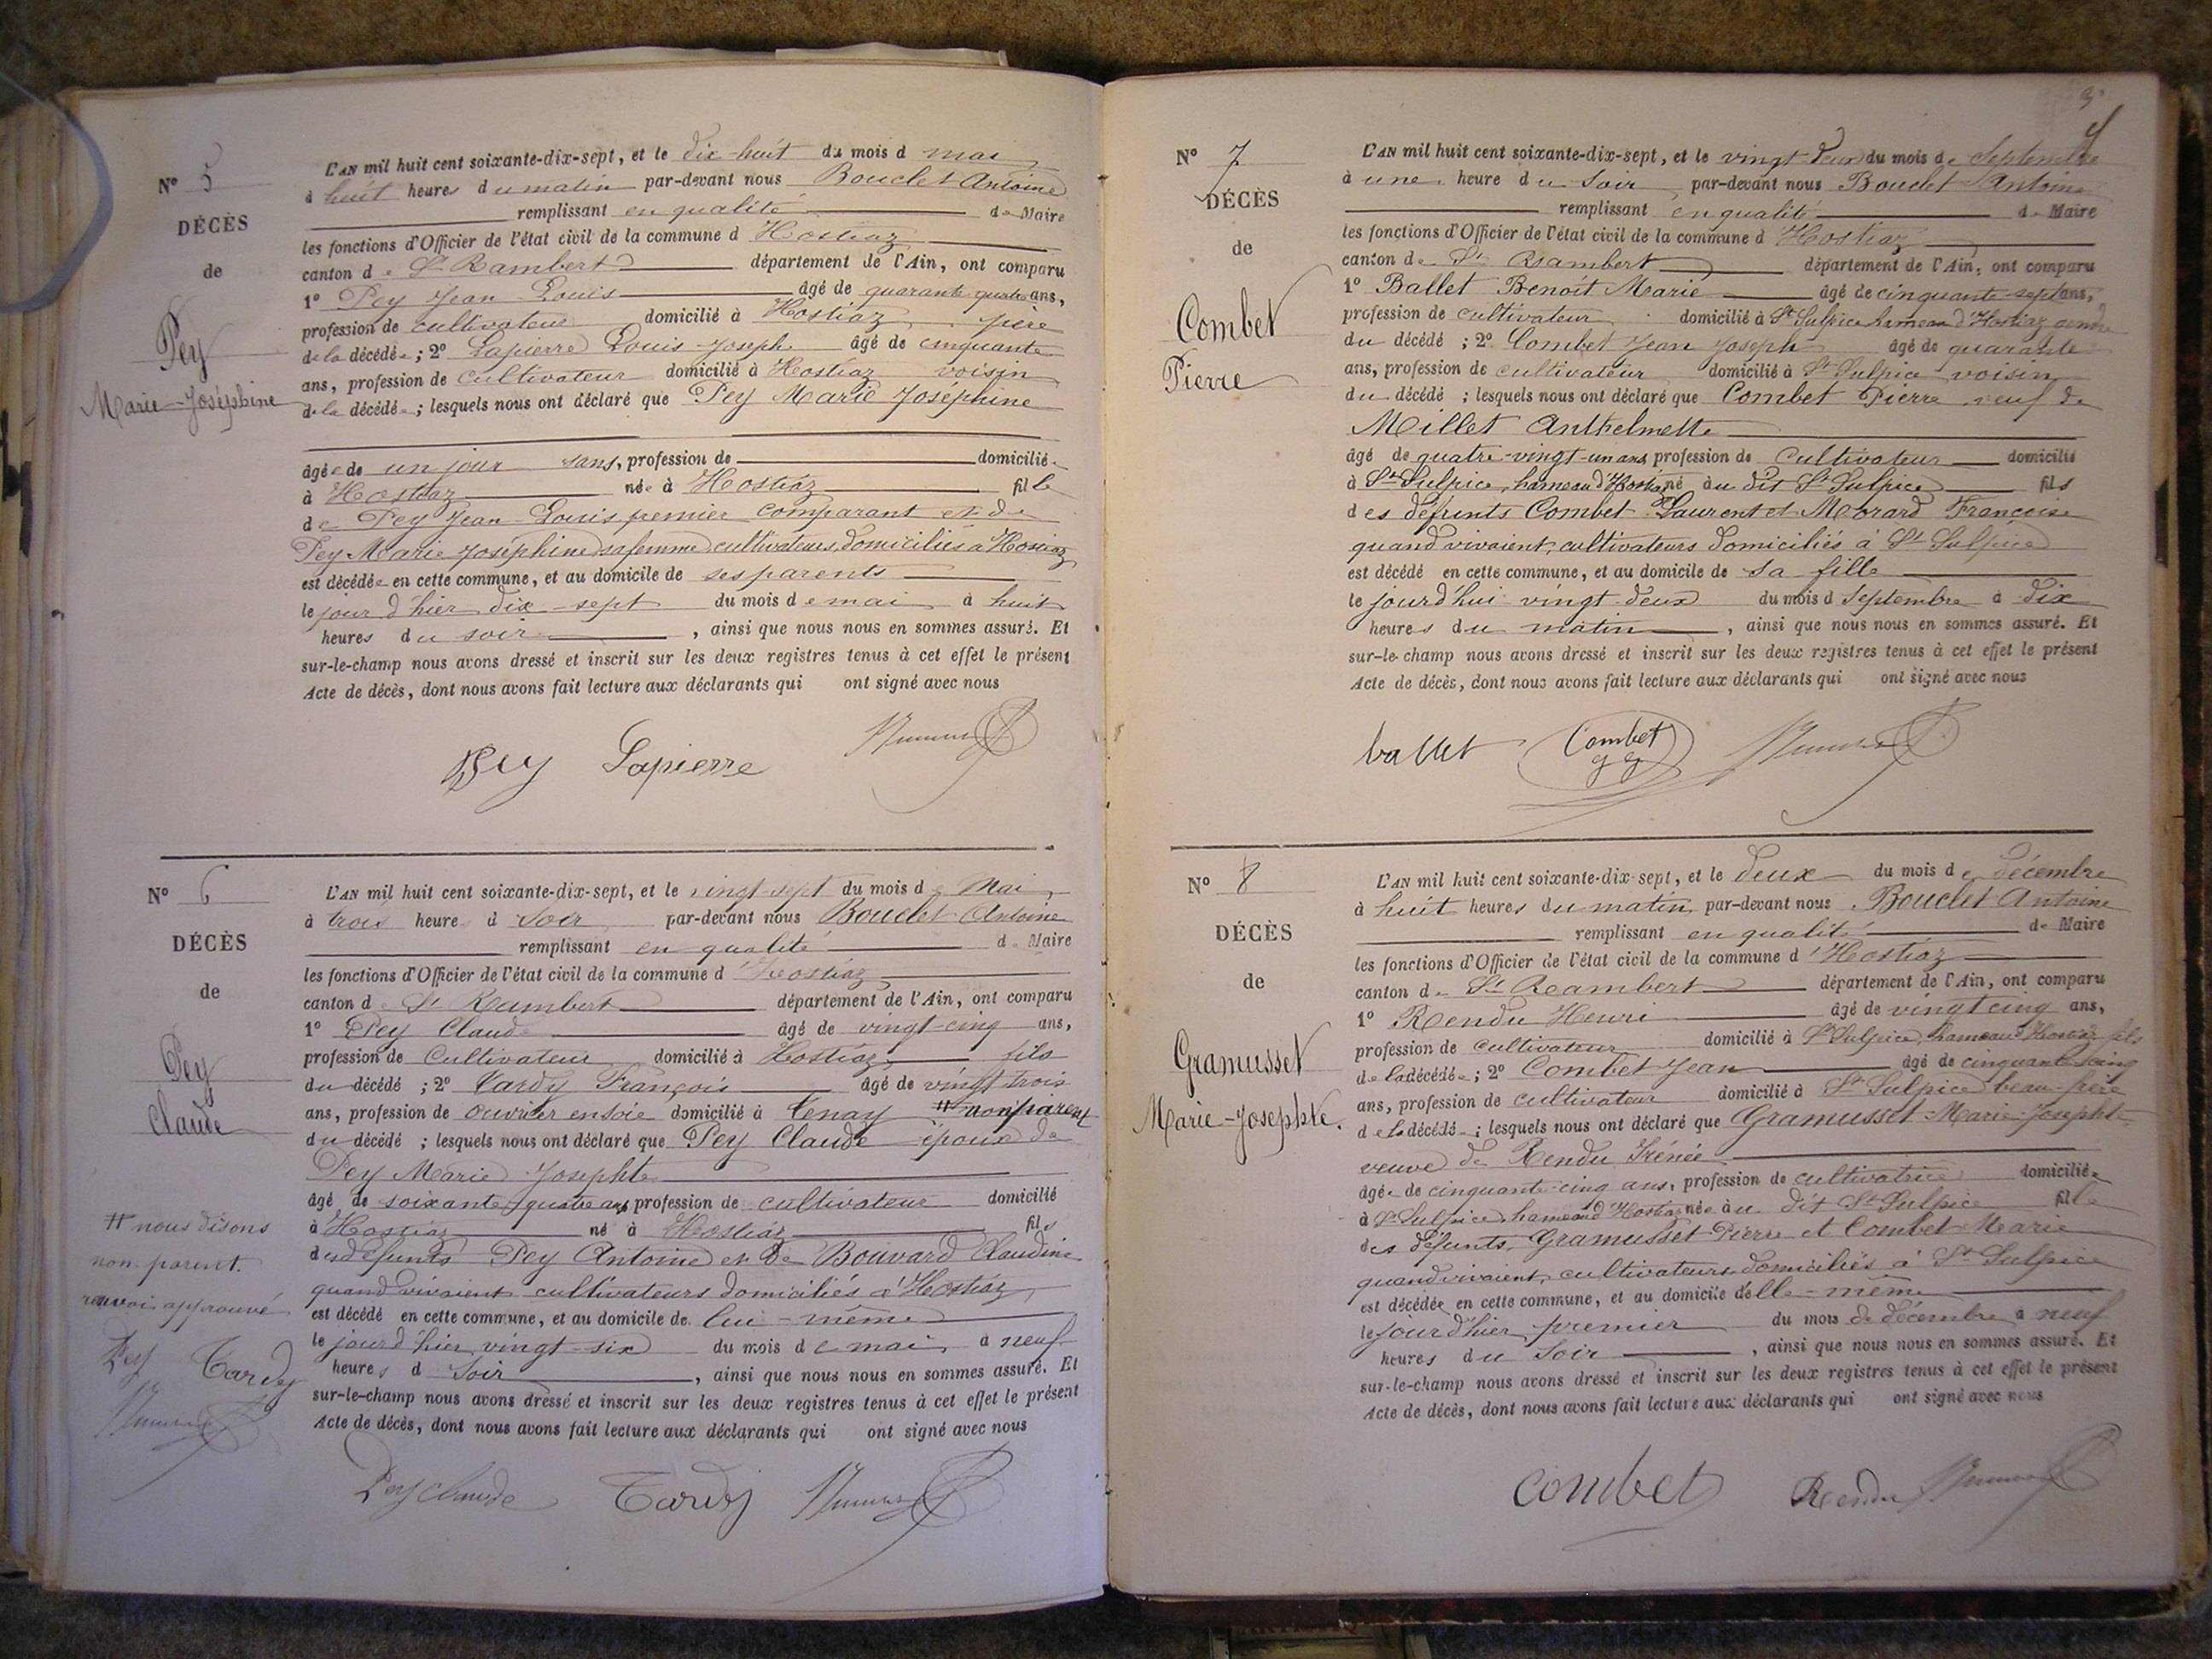 N° 5
DÉCÈS
de
Pey
Marie-Joséphine
L'AN mil huit cent soixante-dix-sept, et le dix-huit du mois d mai
à huit heures du matin par-devant nous Bouclet Antoine
remplissant en qualité de Maire
les fonctions d'Officier de l'état civil de la commune d Hostiaz
canton de St Rambert département de l'Ain, ont comparu
1° Pey Jean-Louis âgé de quarante quatre ans,
profession de cultivateur domicilié à Hostiaz père
de la décédée; 2° Lapierre Louis-Joseph âgé de cinquante
ans, profession de cultivateur domicilié à Hostiaz voisin
de la décédée; lesquels nous ont déclaré que Pey Marie Joséphine
âgée de un jour sans, profession de domicilié
à Hostiaz née à Hostiaz fille
de Pey Jean-Louis premier comparant et de
Pey Marie Joséphine sa femme cultivateurs, domiciliés à Hostiaz
est décédée en cette commune, et au domicile de ses parents
le jour d'hier dix-sept du mois de mai à huit
heures du soir, ainsi que nous nous en sommes assuré. Et
sur-le-champ nous avons dressé et inscrit sur les deux registres tenus à cet effet le présent
Acte de décès, dont nous avons fait lecture aux déclarants qui ont signé avec nous
Pey Lapierre
N° 6
DÉCÈS
de
Pey
Claude
L'AN mil huit cent soixante-dix-sept, et le vingt-sept du mois de Mai,
à trois heure d soir par-devant nous Bouclet Antoine
remplissant en qualité de Maire
les fonctions d'Officier de l'état civil de la commune d'Hostiaz
canton de St Rambert département de l'Ain, ont comparu
1° Pey Claude âgé de vingt-cinq ans,
profession de Cultivateur domicilié à Hostiaz fils
du décédé; 2° Tardy François âgé de vingt trois
ans, profession de ouvrier en soie domicilié à Tenay # non parent
du décédé; lesquels nous ont déclaré que Pey Claude époux de
Pey Marie Josephte
âgé de soixante quatre ans profession de cultivateur domicilié
à Hostiaz né à Hostiaz fils
des défunts Pey Antoine et de Bouvard Claudine
quand vivaient cultivateurs domiciliés à Hostiaz,
est décédé en cette commune, et au domicile de lui-même
le jour d'hier vingt-six du mois de mai à neuf
heures d soir, ainsi que nous nous en sommes assuré. Et
sur-le-champ nous avons dressé et inscrit sur les deux registres tenus à cet effet le présent
Acte de décès, dont nous avons fait lecture aux déclarants qui ont signé avec nous
# nous disons
non-parent.
renvoi approuvé
Pey Tardy
Pey claude Tardy
3
N° 7
DÉCÈS
de
Combet
Pierre
L'AN mil huit cent soixante-dix-sept, et le vingt-deux du mois de Septembre
à une heure du soir par-devant nous Bouclet Antoine
remplissant en qualité de Maire
les fonctions d'Officier de l'état civil de la commune d Hostiaz
canton de St Rambert département de l'Ain, ont comparu
1° Ballet Benoit Marie âgé de cinquante-sept ans,
profession de cultivateur domicilié à St Sulpice hameau d'Hostiaz gendre
du décédé; 2° Combet Jean Joseph âgé de quarante
ans, profession de cultivateur domicilié à St Sulpice voisin
du décédé; lesquels nous ont déclaré que Combet Pierre veuf de
Millet Anthelmette
âgé de quatre-vingt-un ans, profession de Cultivateur domicilié
à St Sulpice, hameau d'Hostiaz né au dit St Sulpice fils
des défunts Combet Laurent et Morard Françoise
quand vivaient, cultivateurs domiciliés à St Sulpice
est décédé en cette commune, et au domicile de sa fille
le jourd'hui vingt-deux du mois d Septembre à dix
heures du matin, ainsi que nous nous en sommes assuré. Et
sur-le-champ nous avons dressé et inscrit sur les deux registres tenus à cet effet le présent
Acte de décès, dont nous avons fait lecture aux déclarants qui ont signé avec nous
ballet Combet
N° 8
DÉCÈS
de
Gramusset
Marie-Josephte.
L'AN mil huit cent soixante-dix-sept, et le deux du mois de Décembre
à huit heures du matin par-devant nous Bouclet Antoine
remplissant en qualité de Maire
les fonctions d'Officier de l'état civil de la commune d'Hostiaz
canton de St Rambert département de l'Ain, ont comparu
1° Rendu Henri âgé de vingt cinq ans,
profession de cultivateur domicilié à St Sulpice, hameau d'Hostiaz fils
de la décédée; 2° Combet Jean âgé de cinquante cinq
ans, profession de cultivateur domicilié à St Sulpice beau-frère
de la décédée; lesquels nous ont déclaré que Gramusset Marie-Josephte
veuve de Rendu Irénée
âgée de cinquante-cinq ans, profession de cultivatrice domiciliée
à St Sulpice hameau d'Hostiaz née au dit St Sulpice fille
des défunts, Gramusset Pierre et Combet Marie
quand vivaient, cultivateurs domiciliés à St Sulpice
est décédée en cette commune, et au domicile d'elle-même
le jour d'hier premier du mois de décembre à neuf
heures du soir, ainsi que nous nous en sommes assuré. Et
sur-le-champ nous avons dressé et inscrit sur les deux registres tenus à cet effet le présent
Acte de décès, dont nous avons fait lecture aux déclarants qui ont signé avec nous
Combet Rendu